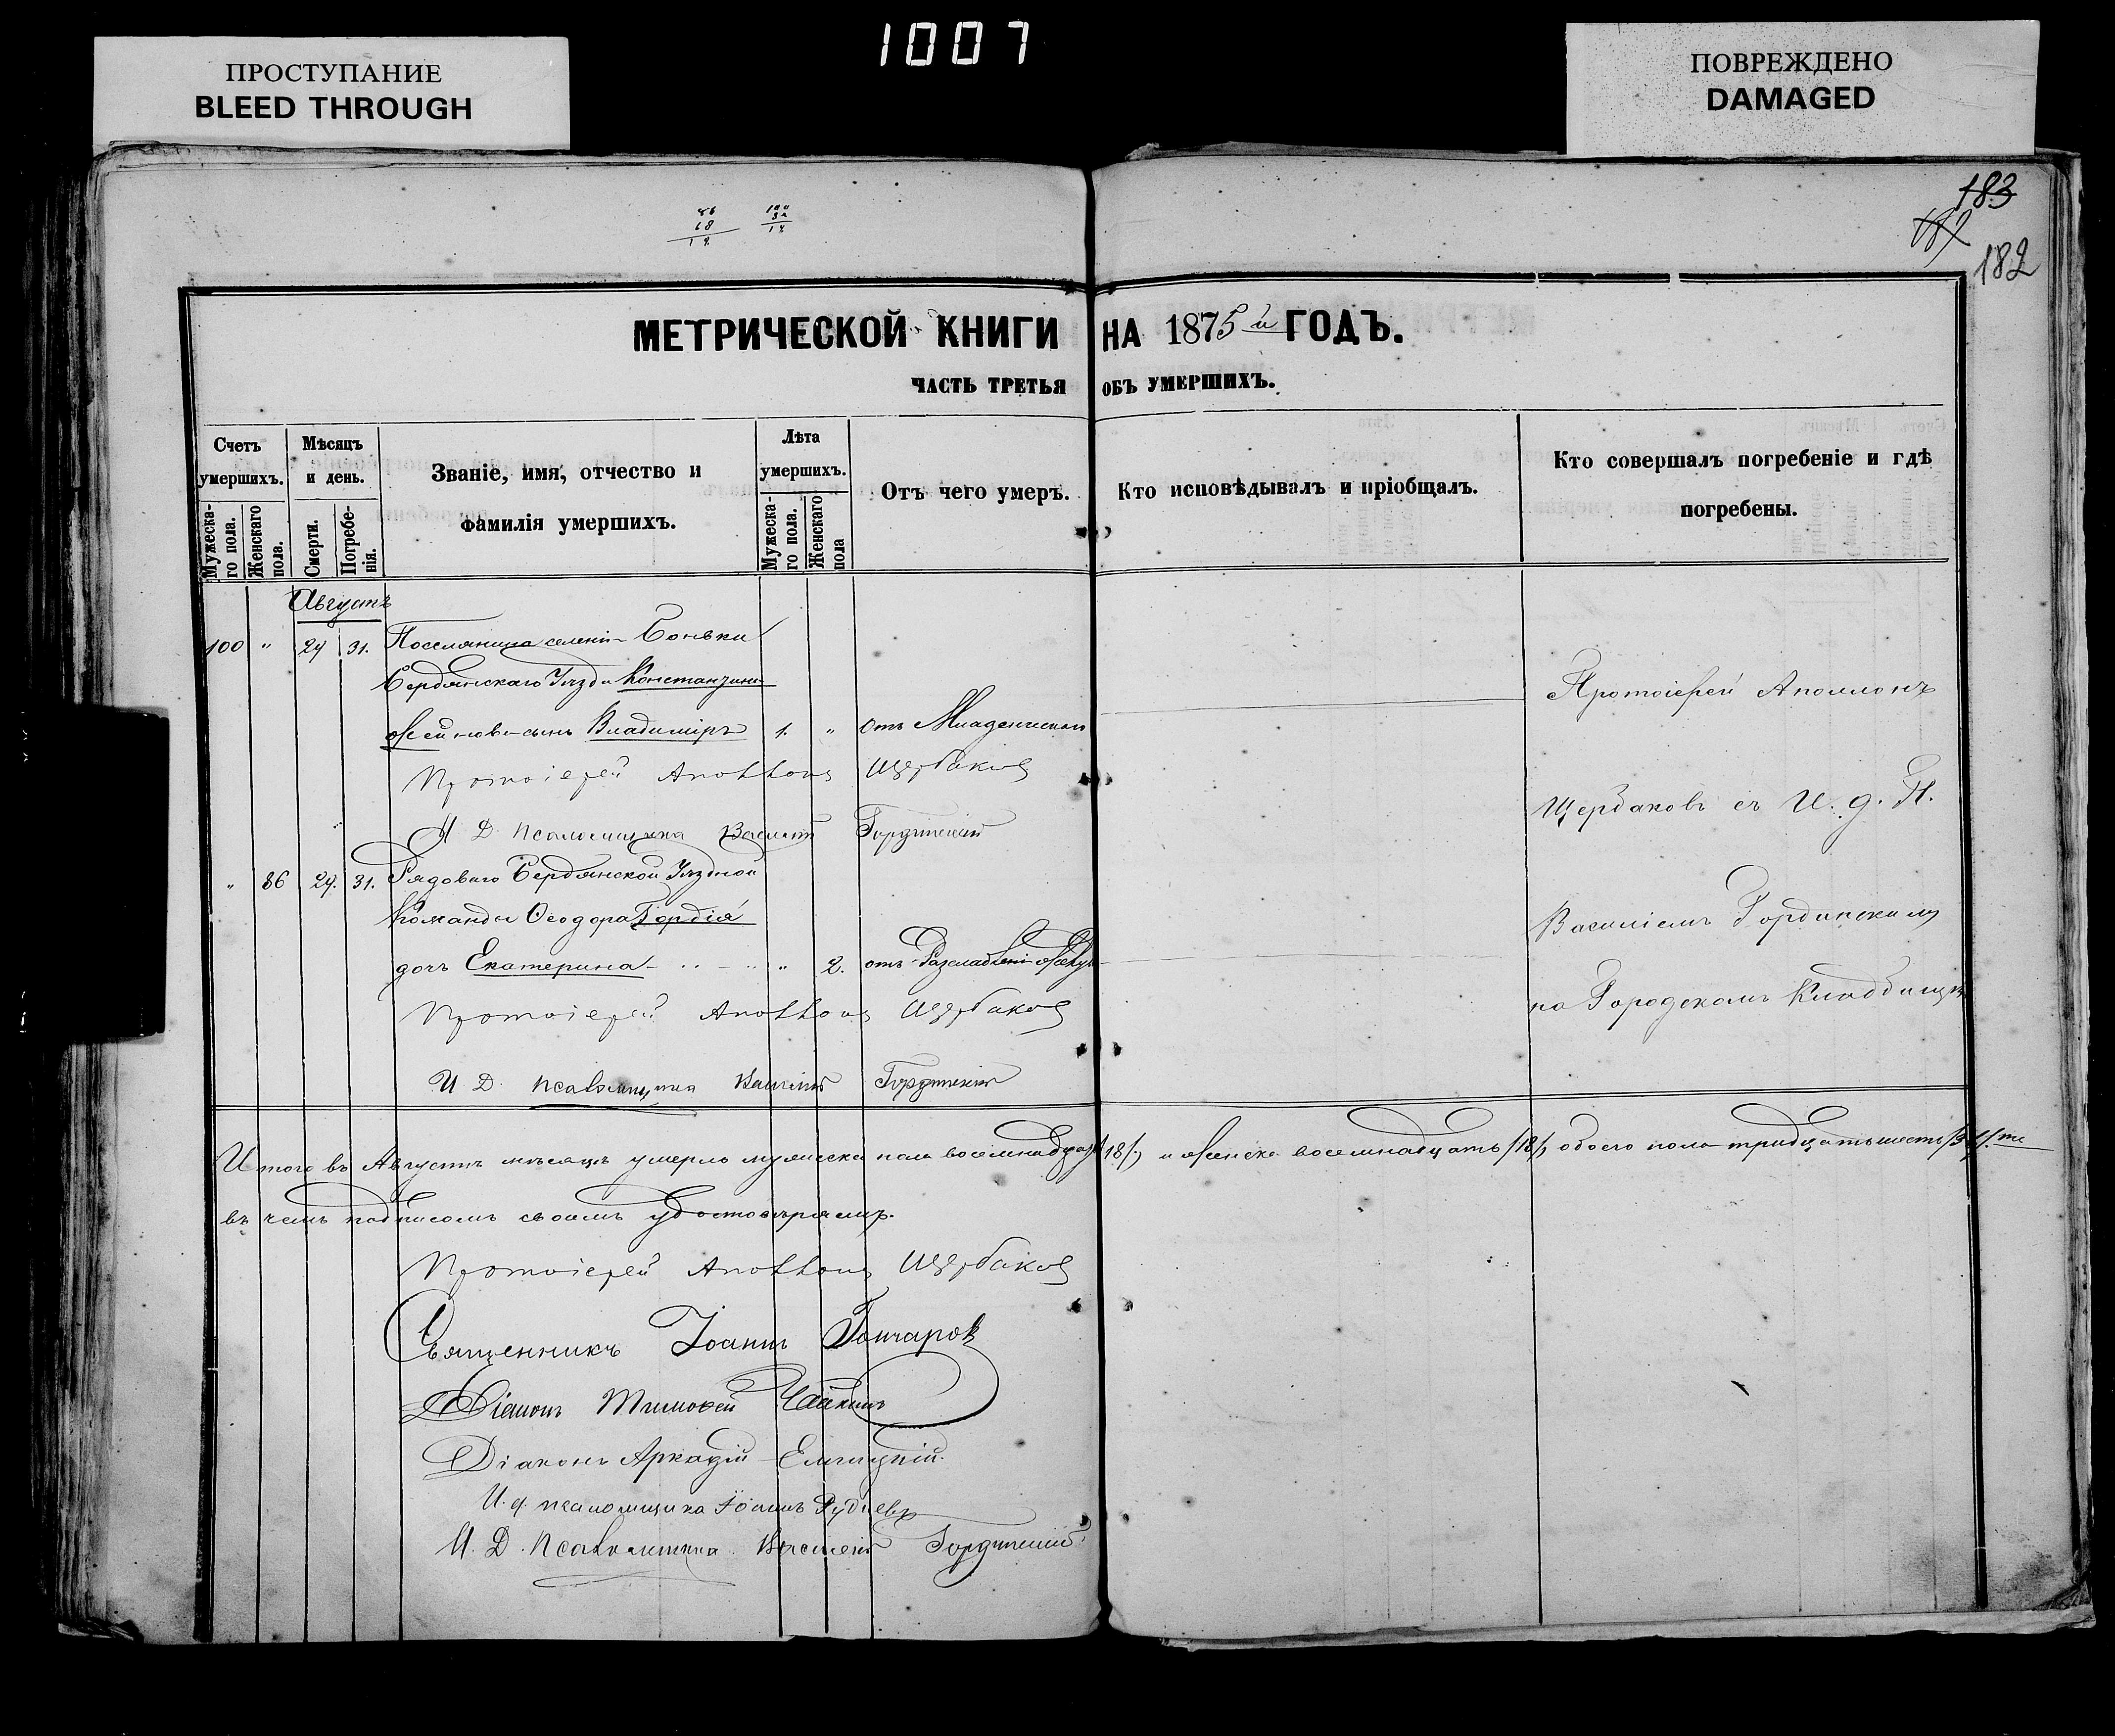 1007
ПРОСТУПАНИЕ
BLEED THROUGH
ПОВРЕЖДЕНО
DAMAGED
183
182
86
68
МЕТРИЧЕСКОЙ КНИГИ НА 1875й ГОДЪ.
ЧАСТЬ ТРЕТЬЯ ОБЪ УМЕРШИХЪ.
Счетъ умершихъ.
Мужеска-го пола.
Женскаго пола.
Мѣсяцъ и день.
Смерти.
Погребе-нія.
Званіе, имя, отчество и фамилія умершихъ.
Лѣта умершихъ.
Мужеска-го пола.
Женскаго пола
Отъ чего умеръ.
Кто исповѣдывалъ и пріобщалъ.
Кто совершалъ погребеніе и гдѣ погребены.
Августъ
100 " 29 31. Поселянина селенія
Бердянскаго Уѣзда
сынъ Владиміръ 1. " отъ Младенческой
Протоіерей Аполлонъ Щербаковъ
И Д Псаломщика Василій Гординскій
" 86 29. 31. Рядоваго Бердянской Уѣздной
Команды Ѳеодора Гордія
дочь Екатерина " 2. отъ
Протоіерей Аполлонъ Щербаковъ
И Д. Псаломщика Василій Гординскій
Протоіерей Аполлонъ
Щербаковъ съ И. д. П.
Василіемъ Гординскимъ
на Городскомъ Кладбищѣ
Итого въ Августѣ мѣсяцѣ умерло мужеска пола восемнадцать /18/, и женска восемнадцать /18/, обоего пола тридцать шесть
въ чемъ подписомъ своимъ удостовѣряемъ.
Протоіерей Аполлонъ Щербаковъ
Священникъ Іоаннъ Гончаровъ
Діаконъ Тимоѳей Чайкинъ
Діаконъ Аркадій
И. д. псаломщика Іоаннъ Рудневъ
И. Д. Псаломщика Василій Гординскій